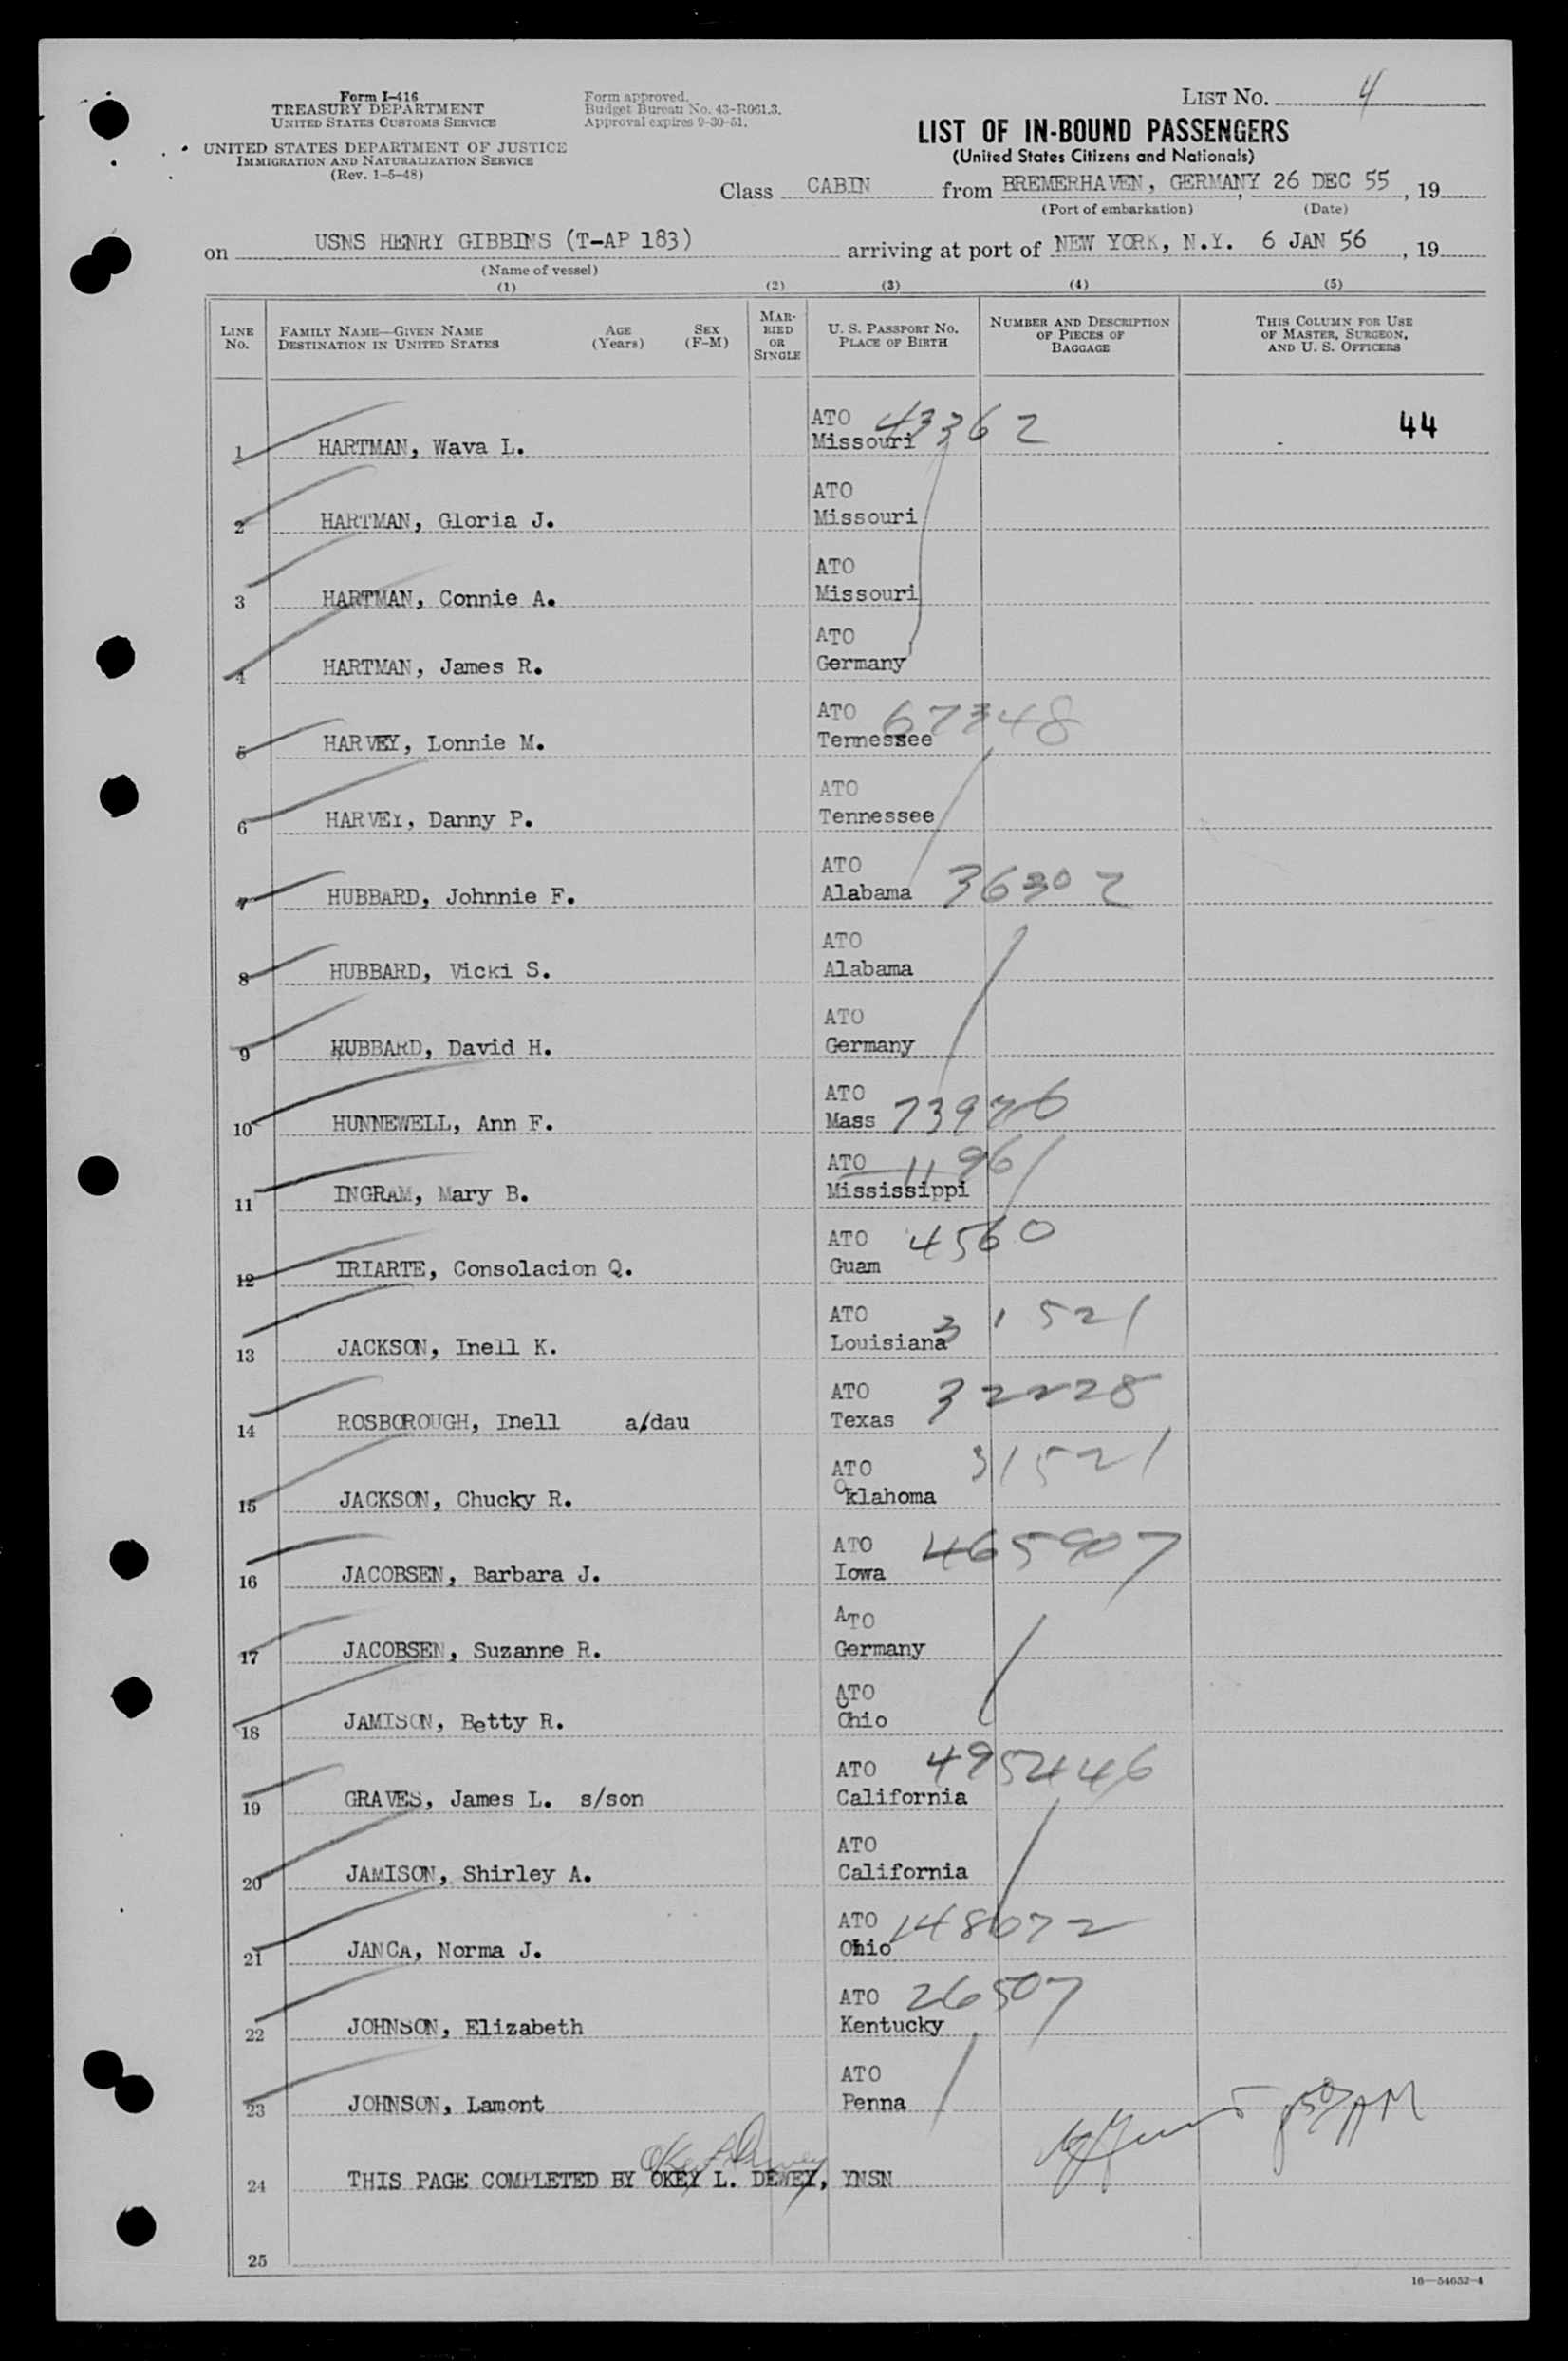 Form I-416
TREASURY DEPARTMENT
UNITED STATES CUSTOMS SERVICE
UNITED STATES DEPARTMENT OF JUSTICE
IMMIGRATION AND NATURALIZATION SERVICE
(Rev. 1-5-48)
Form approved.
Budget Bureau No. 43-R061.3.
Approval expires 9-30-51.
LIST NO. 4
LIST OF IN-BOUND PASSENGERS
(United States Citizens and Nationals)
Class CABIN from BREMERHAVEN, GERMANY, 26 DEC 55, 19
(Port of embarkation) (Date)
on USNS HENRY GIBBINS (T-AP 183) arriving at port of NEW YORK, N.Y. 6 JAN 56, 19
(Name of vessel)
(1) (2) (3) (4) (5)
LINE NO.
FAMILY NAME—GIVEN NAME
DESTINATION IN UNITED STATES
AGE (Years)
SEX (F-M)
MARRIED OR SINGLE
U. S. PASSPORT NO.
PLACE OF BIRTH
NUMBER AND DESCRIPTION OF PIECES OF BAGGAGE
THIS COLUMN FOR USE OF MASTER, SURGEON, AND U. S. OFFICERS
ATO 43362 44
1 HARTMAN, Wava L. Missouri
ATO
2 HARTMAN, Gloria J. Missouri
ATO
3 HARTMAN, Connie A. Missouri
ATO
4 HARTMAN, James R. Germany
ATO 67348
5 HARVEY, Lonnie M. Tennessee
ATO
6 HARVEY, Danny P. Tennessee
ATO
7 HUBBARD, Johnnie F. Alabama 36302
ATO
8 HUBBARD, Vicki S. Alabama
ATO
9 HUBBARD, David H. Germany
ATO
10 HUNNEWELL, Ann F. Mass 73976
ATO 11961
11 INGRAM, Mary B. Mississippi
ATO 4560
12 IRIARTE, Consolacion Q. Guam
ATO 31521
13 JACKSON, Inell K. Louisiana
ATO 32228
14 ROSBOROUGH, Inell a/dau Texas
ATO 31521
15 JACKSON, Chucky R. Oklahoma
ATO 465907
16 JACOBSEN, Barbara J. Iowa
ATO
17 JACOBSEN, Suzanne R. Germany
ATO
18 JAMISON, Betty R. Ohio
ATO 495446
19 GRAVES, James L. s/son California
ATO
20 JAMISON, Shirley A. California
ATO 148672
21 JANCA, Norma J. Ohio
ATO 26507
22 JOHNSON, Elizabeth Kentucky
ATO
23 JOHNSON, Lamont Penna
24 THIS PAGE COMPLETED BY OKEY L. DEWEY, YNSN
25
16—54652-4